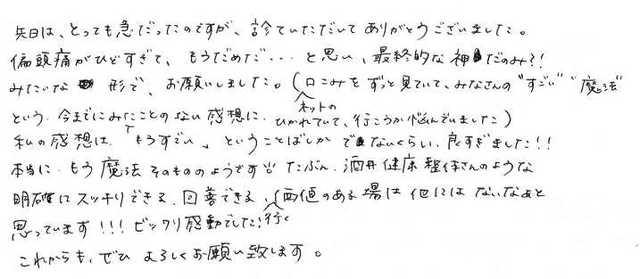 先日は、とっても急だったのですが、診ていただいてありがとうございました。
偏頭痛がひどすぎて、もうだめだ...と思い、最終的な神だのみ?!
みたいな形で、お願いしました。(口こみをずっと見ていて、みなさんの"すごい""魔法"
という、今までにみたことのない感想に、ネットの
ひかれていて、行こうか悩んでいました)
私の感想は、「もうすごい」ということばしかでないくらい、良すぎました!!
本当に、もう魔法そのもののようです!! たぶん、酒井健康整体さんのような
明確にスッキリできる、改善できる、行く価値のある場は他にはないなぁと
思っています!!! ビックリ感動でした!
これからも、ぜひよろしくお願い致します。